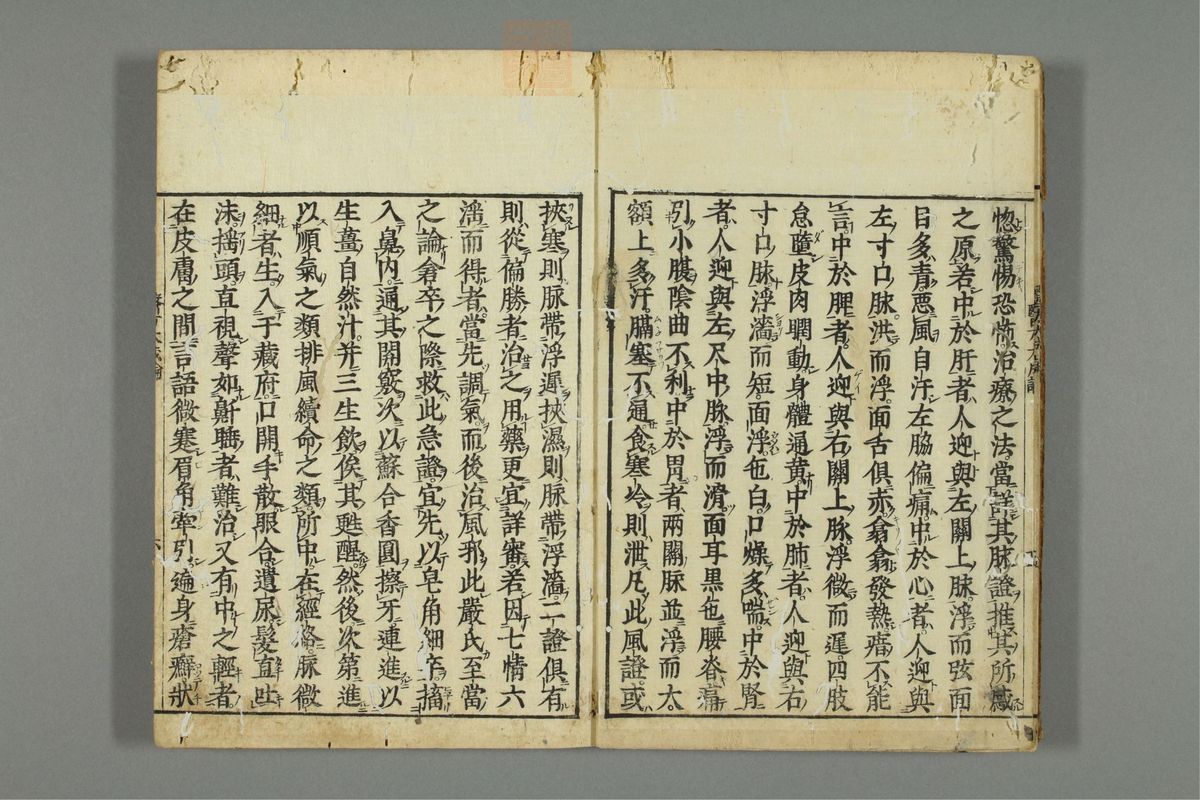 惚驚惕恐怖治療之法當詳其脉證推其所感
之原若中於肝者人迎與左關上脉浮而弦面
目多青悪風自汗左脇偏痛中於心者人迎與
左寸口脉洪而浮面舌俱赤翕翕發熱瘖不能
言中於脾者人迎與右關上脉浮微而遲四肢
怠墮皮肉瞤動身體通黄中於肺者人迎與右
寸口脉浮濇而短面浮色白口燥多喘中於腎
者人迎與左尺中脉浮而滑面耳黒色腰脊痛
引小腹隂曲不利中於胃者兩關脉並浮而大
額上多汗膈塞不通食寒冷則泄凡此風證或
挾寒則脉帶浮遲挾濕則脉帶浮濇二證俱有
則從偏勝者治之用藥更宜詳審若因七情六
淫而得者當先調氣而後治風邪此嚴氏至當
之論倉卒之際救此急證宜先以皂角細辛搐
入鼻内通其関竅次以蘇合香圓擦牙連進以
生薑自然汁并三生飲俟其甦醒然後次第進
以順氣之類排風續命之類所中在經絡脉微
細者生入于藏府口開手散眼合遺尿髮直吐
沫揺頭直視聲如鼾睡者難治又有中之輕者
在皮膚之間言語微蹇眉角牽引遍身瘡癬狀